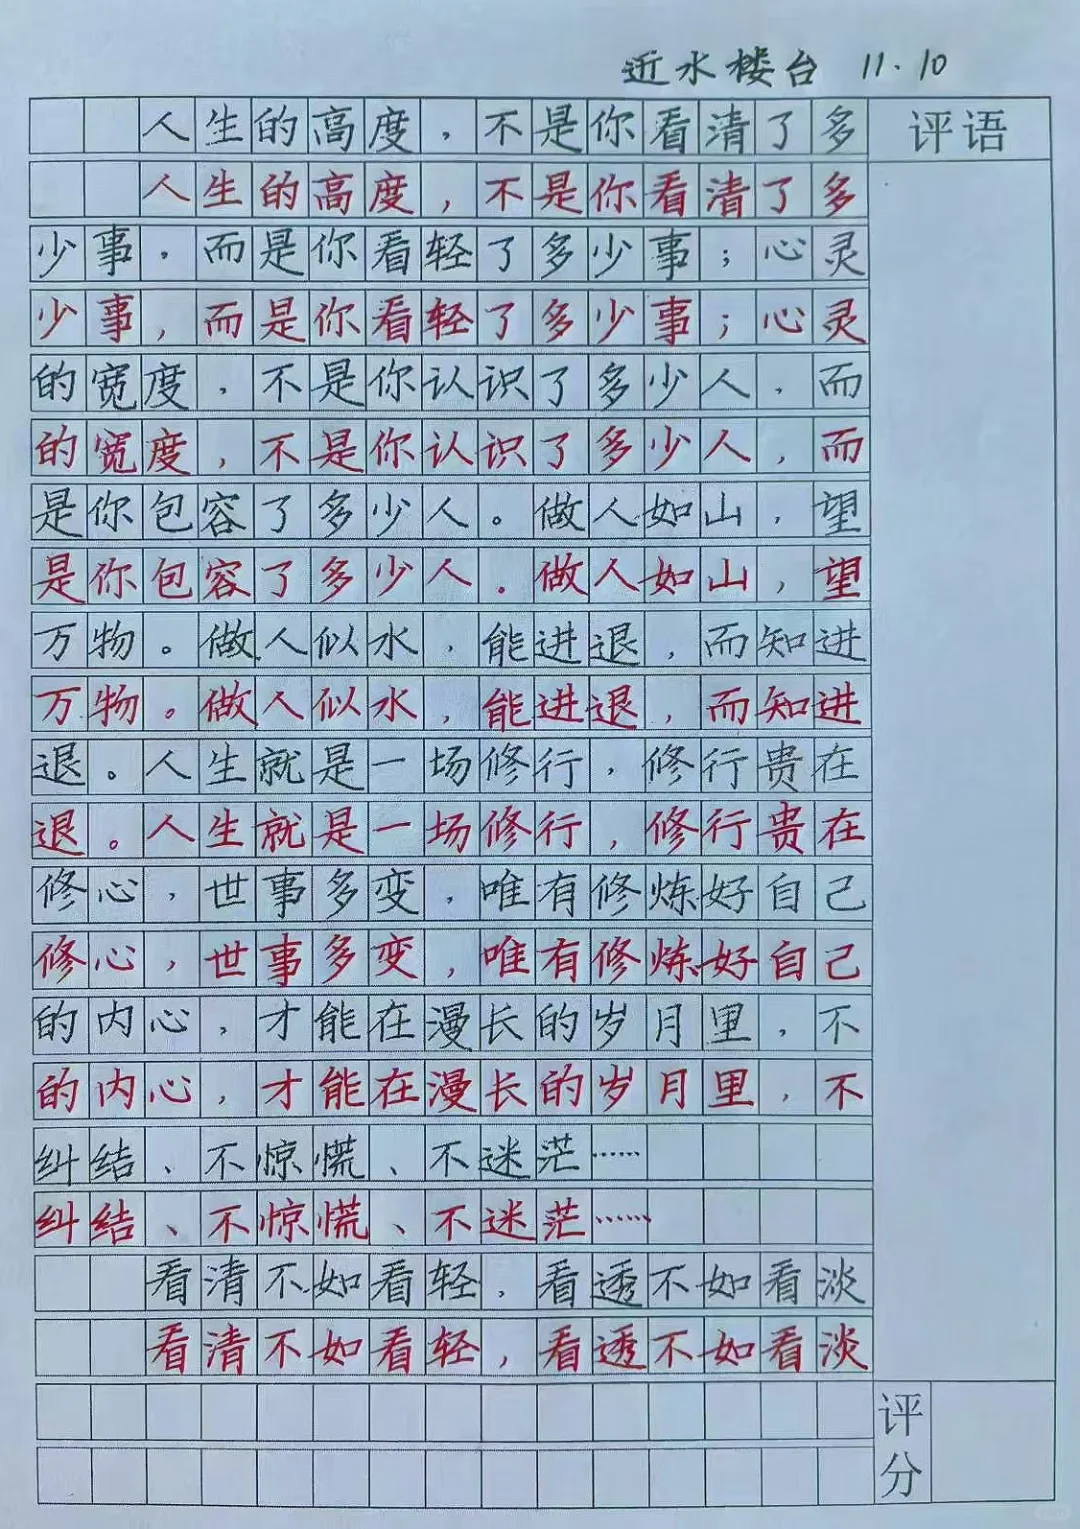 近水楼台 11.10
人生的高度，不是你看清了多
评语
人生的高度，不是你看清了多
少事，而是你看轻了多少事；心灵
少事，而是你看轻了多少事；心灵
的宽度，不是你认识了多少人，而
的宽度，不是你认识了多少人，而
是你包容了多少人。做人如山，望
是你包容了多少人。做人如山，望
万物。做人似水，能进退，而知进
万物。做人似水，能进退，而知进
退。人生就是一场修行，修行贵在
退。人生就是一场修行，修行贵在
修心，世事多变，唯有修炼好自己
修心，世事多变，唯有修炼好自己
的内心，才能在漫长的岁月里，不
的内心，才能在漫长的岁月里，不
纠结、不惊慌、不迷茫……
纠结、不惊慌、不迷茫……
看清不如看轻，看透不如看淡
看清不如看轻，看透不如看淡
评分